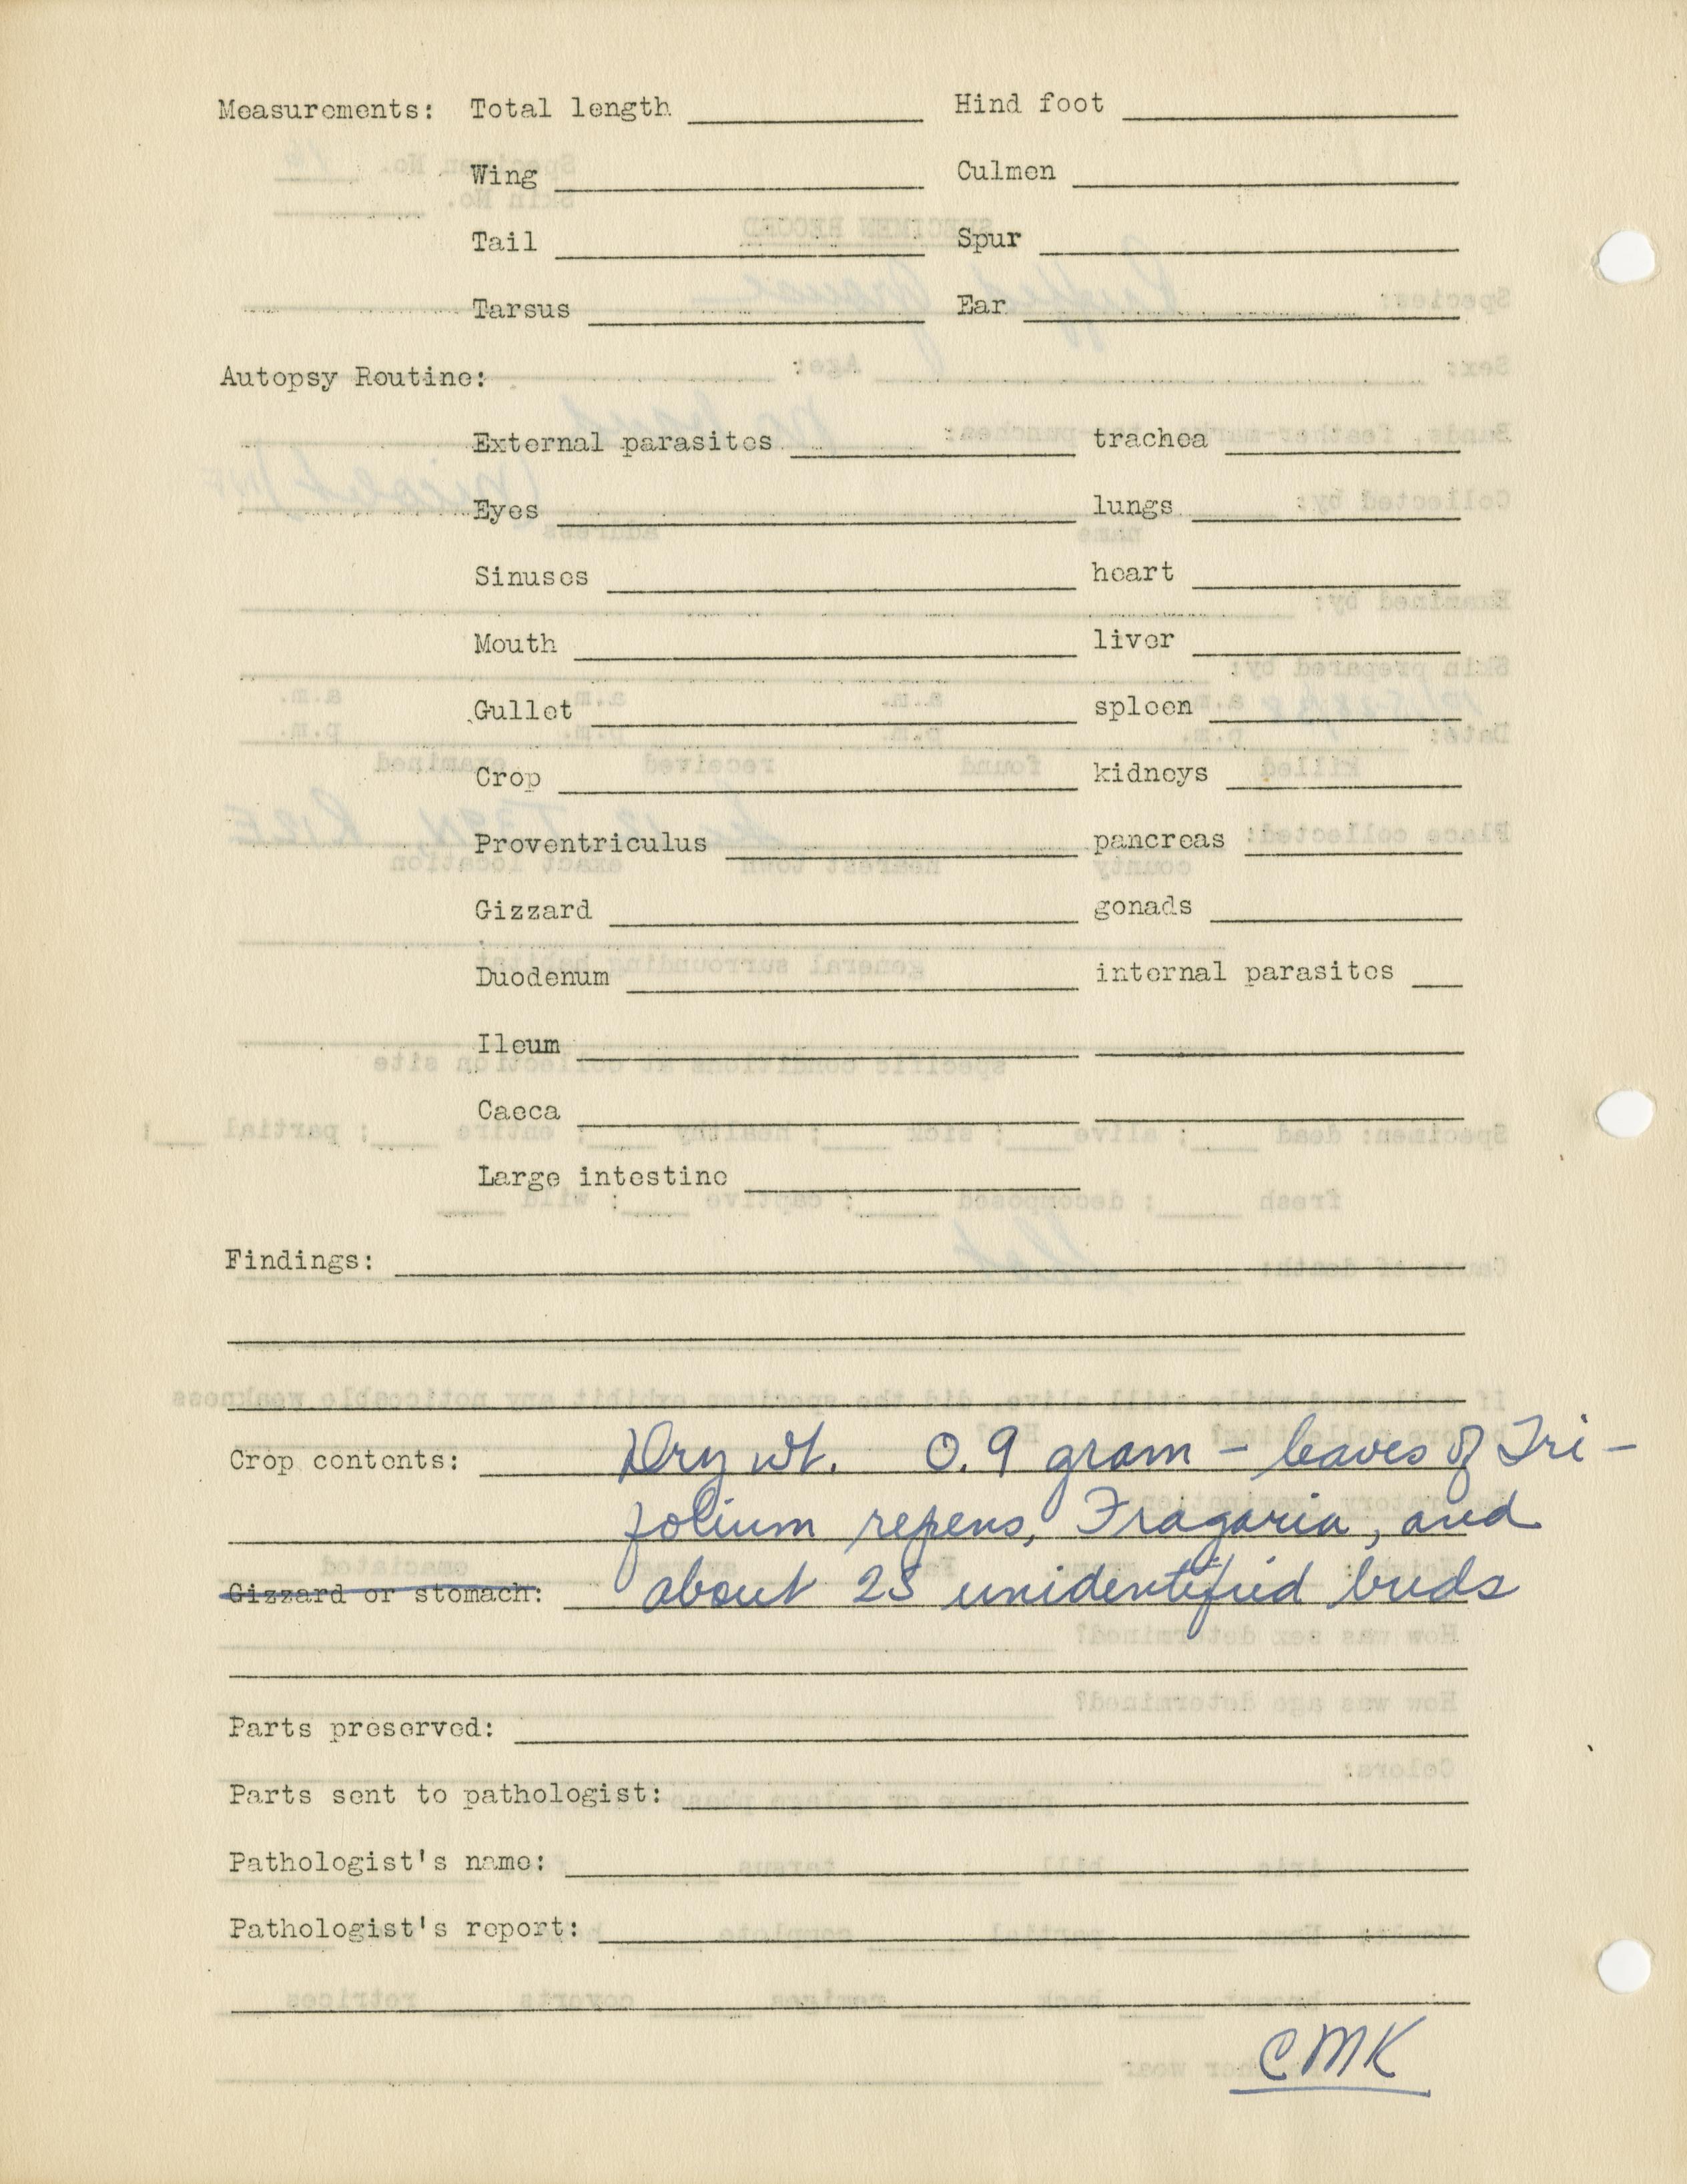 Measurements: Total length ______ Hind foot ______
Wing ______ Culmen ______
Tail ______ Spur ______
Tarsus ______ Ear ______
Autopsy Routine:
External parasites ______ trachea ______
Eyes ______ lungs ______
Sinuses ______ heart ______
Mouth ______ liver ______
Gullet ______ spleen ______
Crop ______ kidneys ______
Proventriculus ______ pancreas ______
Gizzard ______ gonads ______
Duodenum ______ internal parasites ___
Ileum ______ ______
Caeca ______ ______
Large intestine ______
Findings: ______
Crop contents: Dry wt. 0.9 gram – leaves of Tri-
folium repens, Fragaria, and
Gizzard or stomach: about 25 unidentified buds
Parts preserved: ______
Parts sent to pathologist: ______
Pathologist's name: ______
Pathologist's report: ______
CMK